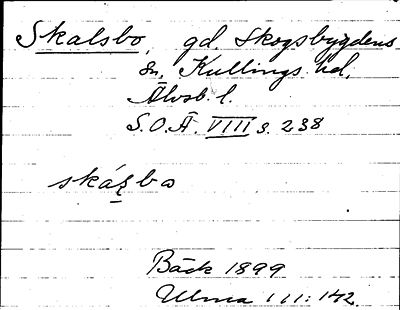 Skalsbo, gd. Skogsbygdens
sn, Kullings hd,
Älvsb. l.
S.O.Ä. VIII s. 238
skázbo
Bäck 1899
Ulma 111:142.